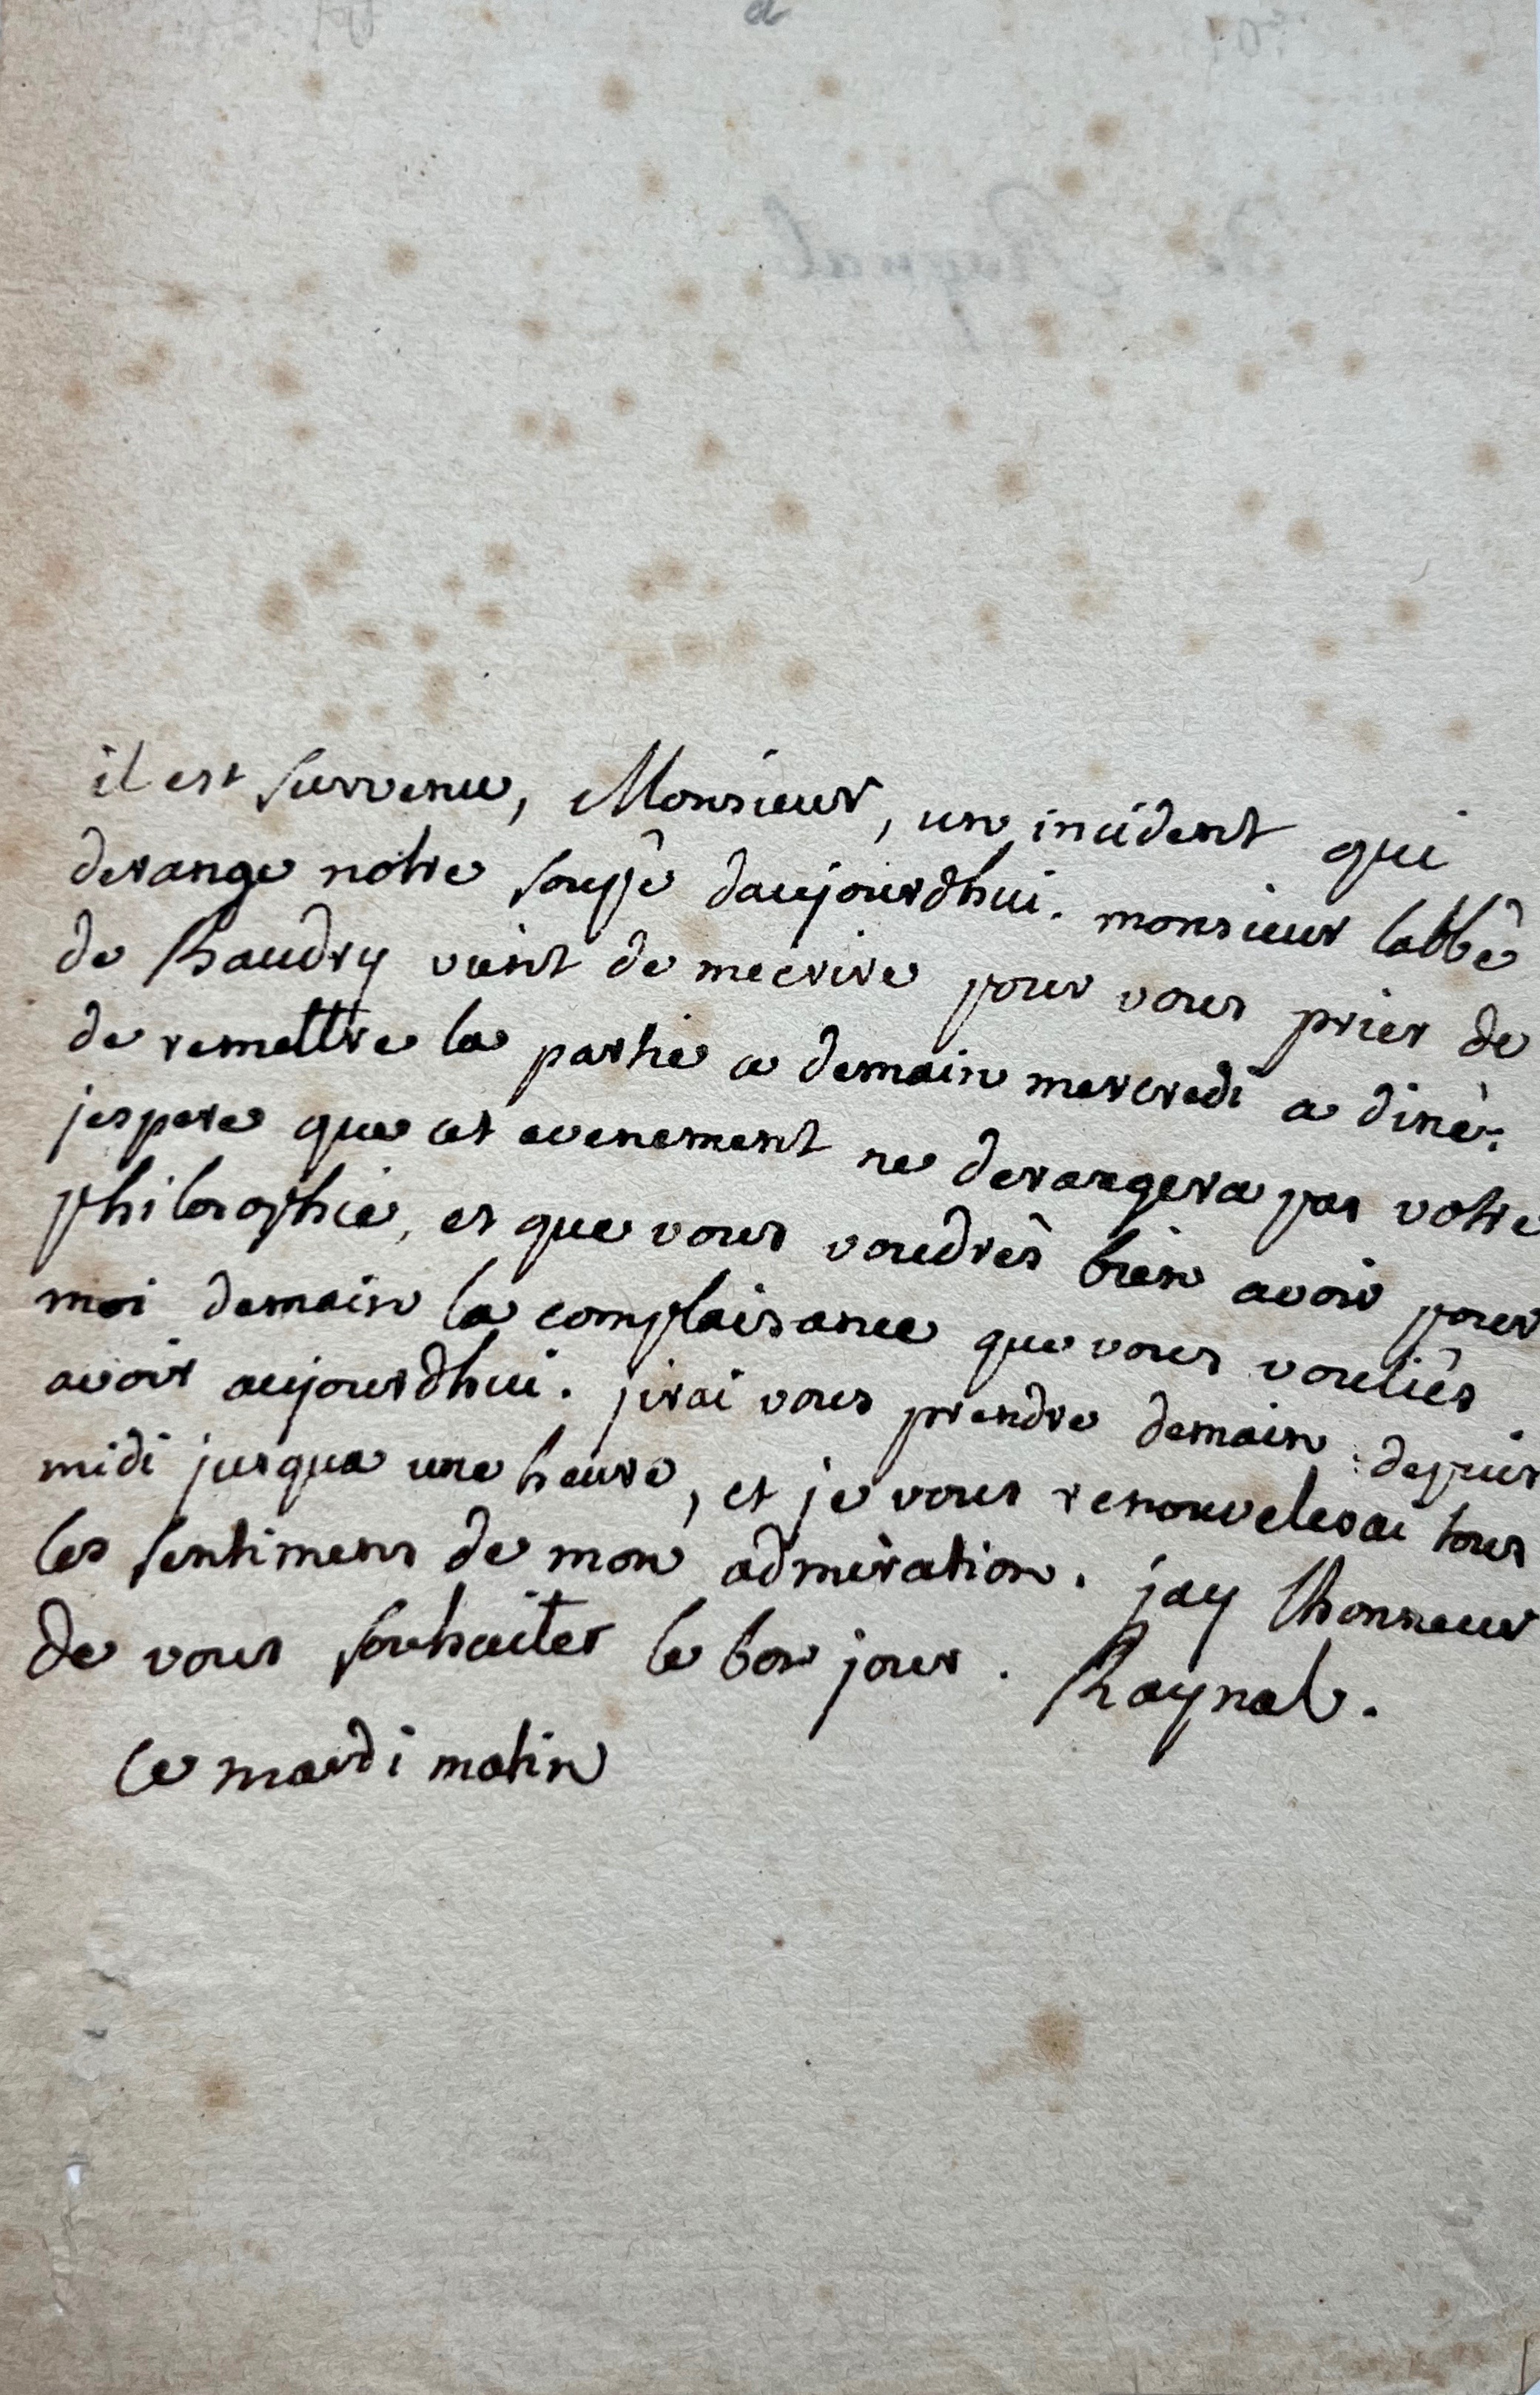 il est survenu, Monsieur, un incident qui
derange notre soupè daujourdhui. monsieur labbè
de Baudry vient de mecrire pour vous prier de
de remettre la partie a demain mercredi a dinè.
jespere que cet evenement ne derangera pas votre
philosophie, et que vous voudrès bien avoir pour
moi demain la complaisance que vous vouliès
avoir aujourdhui. jirai vous prendre demain depuis
midi jusqua une heure, et je vous renouvelerai tous
les sentimens de mon admiration. jay lhonneur
de vous souhaiter le bon jour. Raynal.
le mardi matin